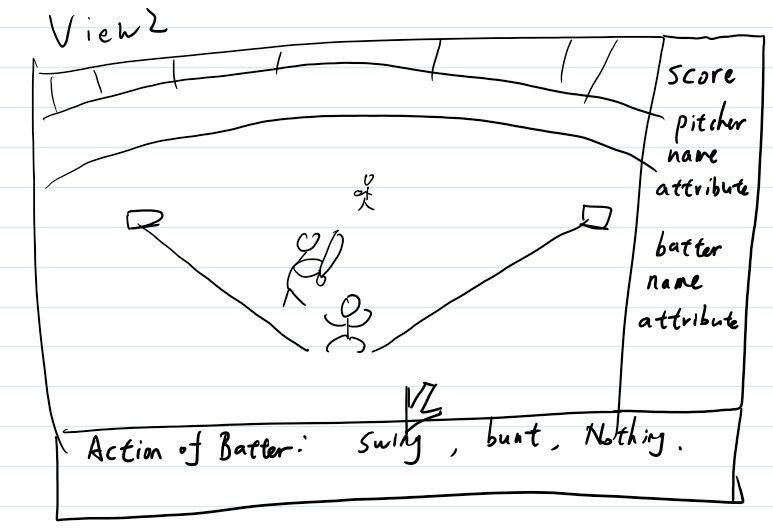 View 2
score
pitcher
name
attribute
batter
name
attribute
Action of Batter: swing, bunt, Nothing.